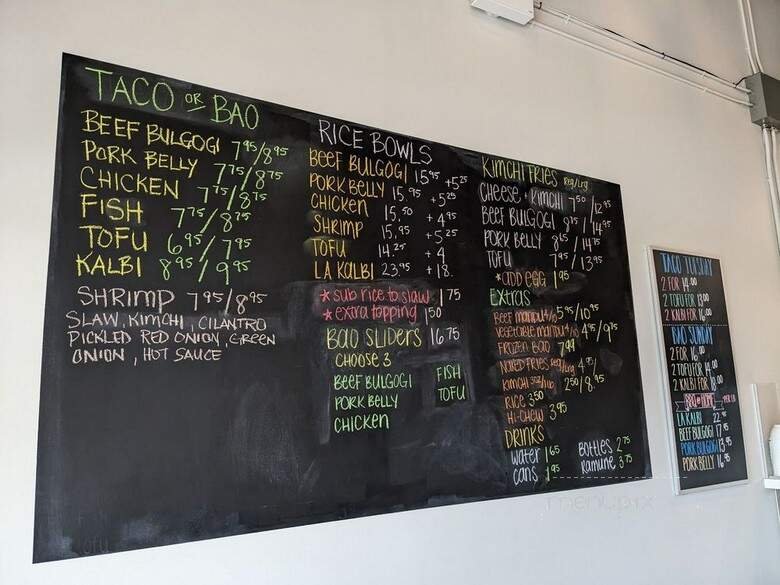 TACO OR BAO
BEEF BULGOGI 7⁹⁵/8⁹⁵
PORK BELLY 7⁷⁵/8⁷⁵
CHICKEN 7⁷⁵/8⁷⁵
FISH 7⁷⁵/8⁷⁵
TOFU 6⁹⁵/7⁹⁵
KALBI 8⁹⁵/9⁹⁵
SHRIMP 7⁹⁵/8⁹⁵
SLAW, KIMCHI, CILANTRO
PICKLED RED ONION, GREEN
ONION, HOT SAUCE
RICE BOWLS
BEEF BULGOGI 15⁹⁵ +5²⁵
PORK BELLY 15.⁹⁵ +5²⁵
CHICKEN 15.⁵⁰ +4⁹⁵
SHRIMP 15.⁹⁵ +5²⁵
TOFU 14.²⁵ +4
LA KALBI 23.⁹⁵ +18.
*SUB RICE TO SLAW 1⁷⁵
*EXTRA TOPPING 1⁵⁰
BAO SLIDERS 16.⁷⁵
CHOOSE 3
BEEF BULGOGI FISH
PORK BELLY TOFU
CHICKEN
KIMCHI FRIES REG/LRG
CHEESE + KIMCHI 7⁵⁰/12⁹⁵
BEEF BULGOGI 8⁹⁵/14⁹⁵
PORK BELLY 8⁶⁵/14⁷⁵
TOFU 7⁹⁵/13⁹⁵
*ADD EGG 1⁹⁵
EXTRAS
BEEF MANDU 5⁹⁵/10⁹⁵
VEGETABLE MANDU 4⁹⁵/9⁹⁵
FROZEN BAO 7⁹⁹
NAKED FRIES REG/LRG 4⁹⁵/
KIMCHI 2⁵⁰/8.⁹⁵
RICE 3⁵⁰
HI-CHEW 3⁹⁵
DRINKS
WATER 1⁶⁵ BOTTLES 2⁷⁵
CANS 1⁹⁵ RAMUNE 3⁷⁵
TACO TUESDAY
2 FOR 14.⁰⁰
2 TOFU FOR 13⁰⁰
2 KALBI FOR 16⁰⁰
BAO SUNDAY
2 FOR 16.⁰⁰
2 TOFU FOR 14.⁰⁰
2 KALBI FOR 18.⁰⁰
LA KALBI 22.
BEEF BULGOGI 17.⁹⁵
PORK BULGOGI 13.⁹⁵
PORK BELLY 16.⁹⁵
menupix